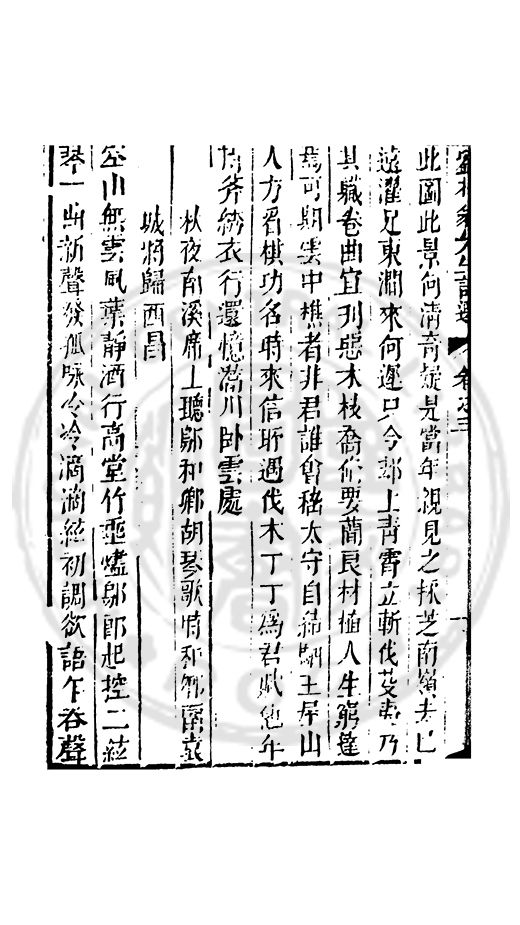 此圖此景何清奇疑是當年親見之採芝南嶺去已
遠濯足東澗來何遲只今郡上青霄立斬伐芟夷乃
其職卷曲宜刊惡木枝裔修要蘭良材植人生窮達
焉可期雲中樵者非君誰會稽太守自結駟王屋山
人方看棋功名時來信所遇伐木丁丁為君賦他年
持斧綉衣行還憶潞川卧雲處
秋夜南溪席上聽鄔和卿胡琴歌時和卿南
城將歸西昌
空山無雲風葉靜酒行高堂竹垂爐鄔郎起控二絃
琴一曲新聲發孤咏冷冷滴滴絃初調欲語乍吞聲